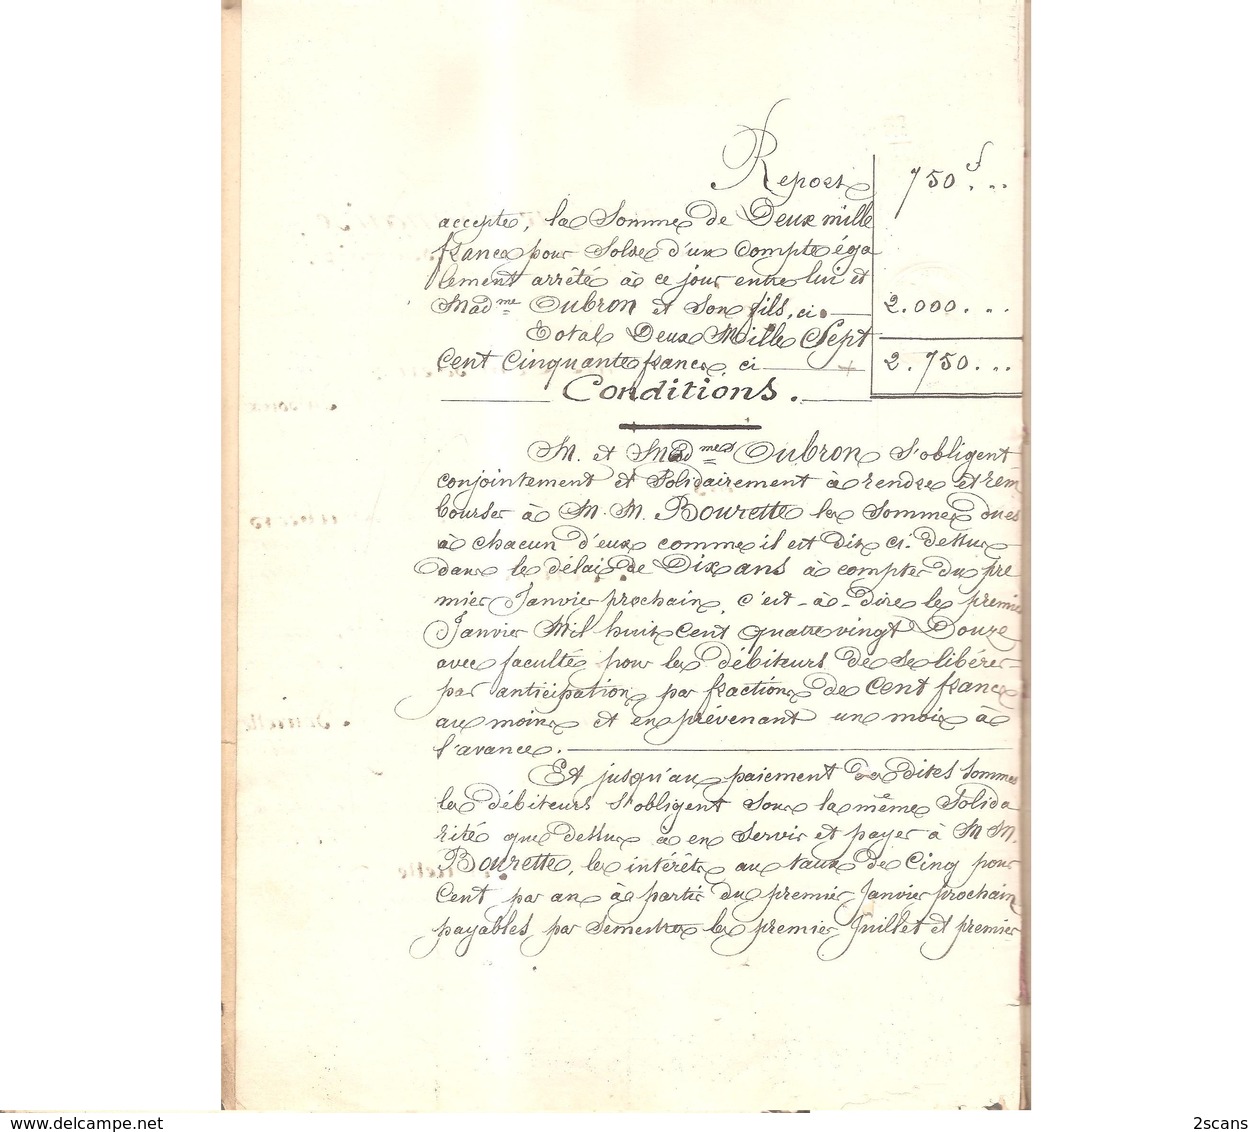 Report 750f...
accepte, la Somme de Deux mille
francs pour Solde d'un Compte éga
lement arrêté à ce jour entre lui et
Madme Oubron et Son fils, ci 2.000...
Total Deux Mille Sept
Cent Cinquante francs, ci 2.750...
Conditions.
M. et Madme Oubron s'obligent
conjointement et Solidairement à rendre et rem
bourser à M.M. Bourette les Sommes dues
à chacun d'eux comme il est dit ci-dessus
dans le délai de Dix ans à compter du pre
mier Janvier prochain, c'est-à-dire le premier
Janvier Mil huit cent quatre vingt Douze
avec faculté pour les débiteurs de se libérer
par anticipation par fractions de Cent francs
au moins et en prévenant un mois à
l'avance.
Et jusqu'au paiement des dites Sommes
les débiteurs s'obligent Sous la même Solida
rité que dessus à en Servir et payer à M.M.
Bourette, les intérêts au taux de Cinq pour
Cent par an à partir du premier Janvier prochain
payables par Semestre les premier Juillet et premier
www.delcampe.net
2scans